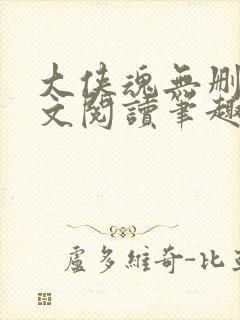 大俠魂無刪
文閱讀筆趣
盧多維奇-比亞